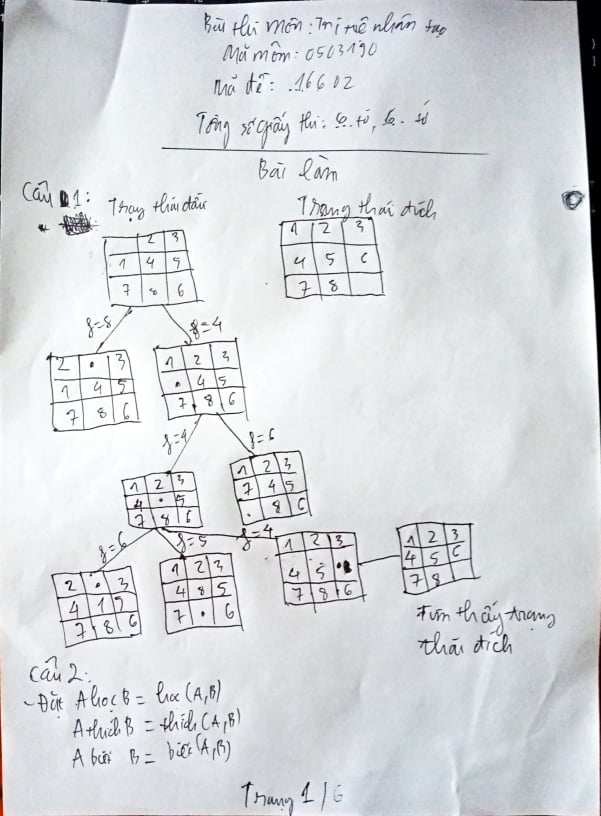 Bài thi môn: Trí tuệ nhân tạo
Mã môn: 0503190
Mã đề: 16602
Tổng số giấy thi: 6 tờ, 6 tờ
Bài làm
Câu 1:
Trạng thái đầu
Trạng thái đích
2 3
1 4 5
7 8 6
1 2 3
4 5 6
7 8
f=8
f=4
2 . 3
1 4 5
7 8 6
1 2 3
. 4 5
7 8 6
f=4
f=6
1 2 3
4 . 5
7 8 6
1 2 3
7 4 5
. 8 6
f=6
f=5
f=4
2 . 3
4 1 5
7 8 6
1 2 3
4 8 5
7 . 6
1 2 3
4 5 .
7 8 6
1 2 3
4 5 6
7 8
Tìm thấy trạng
thái đích
Câu 2:
- Đặt A học B = hoc(A,B)
A thích B = thich(A,B)
A biết B = biet(A,B)
Trang 1/6